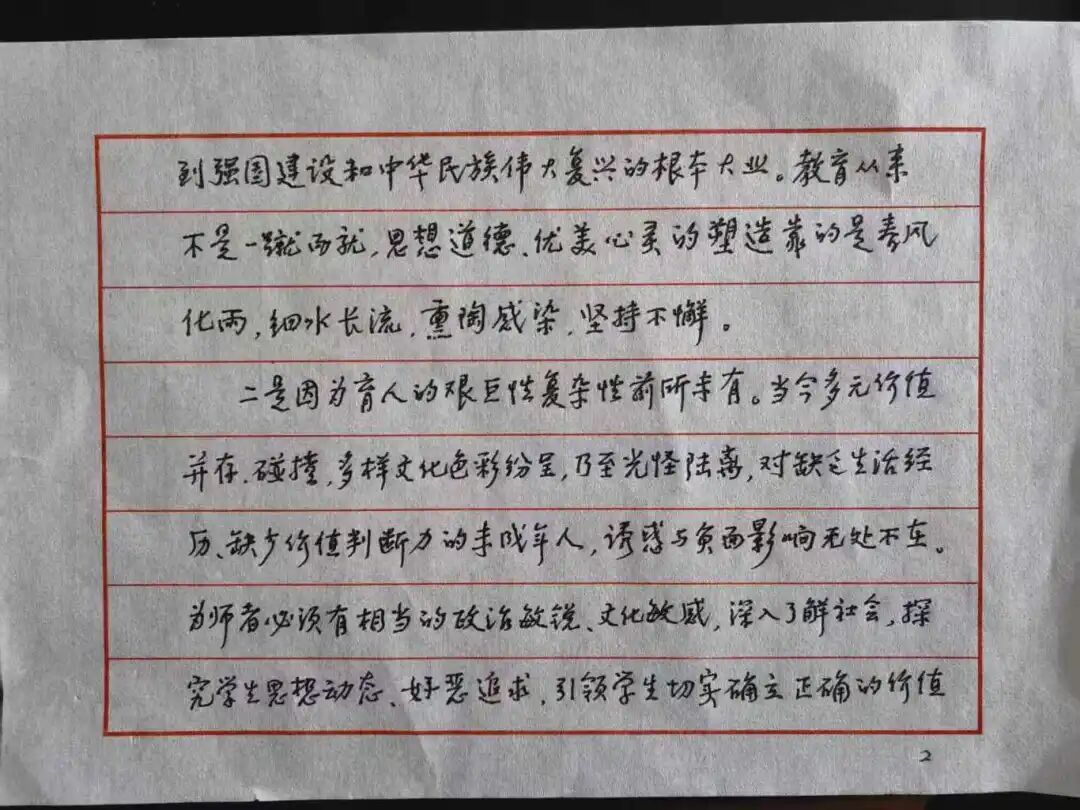 到强国建设和中华民族伟大复兴的根本大业。教育从来
不是一蹴而就，思想道德、优美心灵的塑造靠的是春风
化雨，细水长流，熏陶感染，坚持不懈。
二是因为育人的艰巨性复杂性前所未有。当今多元价值
并存、碰撞，多样文化色彩纷呈，乃至光怪陆离，对缺乏生活经
历、缺少价值判断力的未成年人，诱惑与负面影响无处不在。
为师者必须有相当的政治敏锐、文化敏感，深入了解社会，探
究学生思想动态、好恶追求，引领学生切实确立正确的价值
2